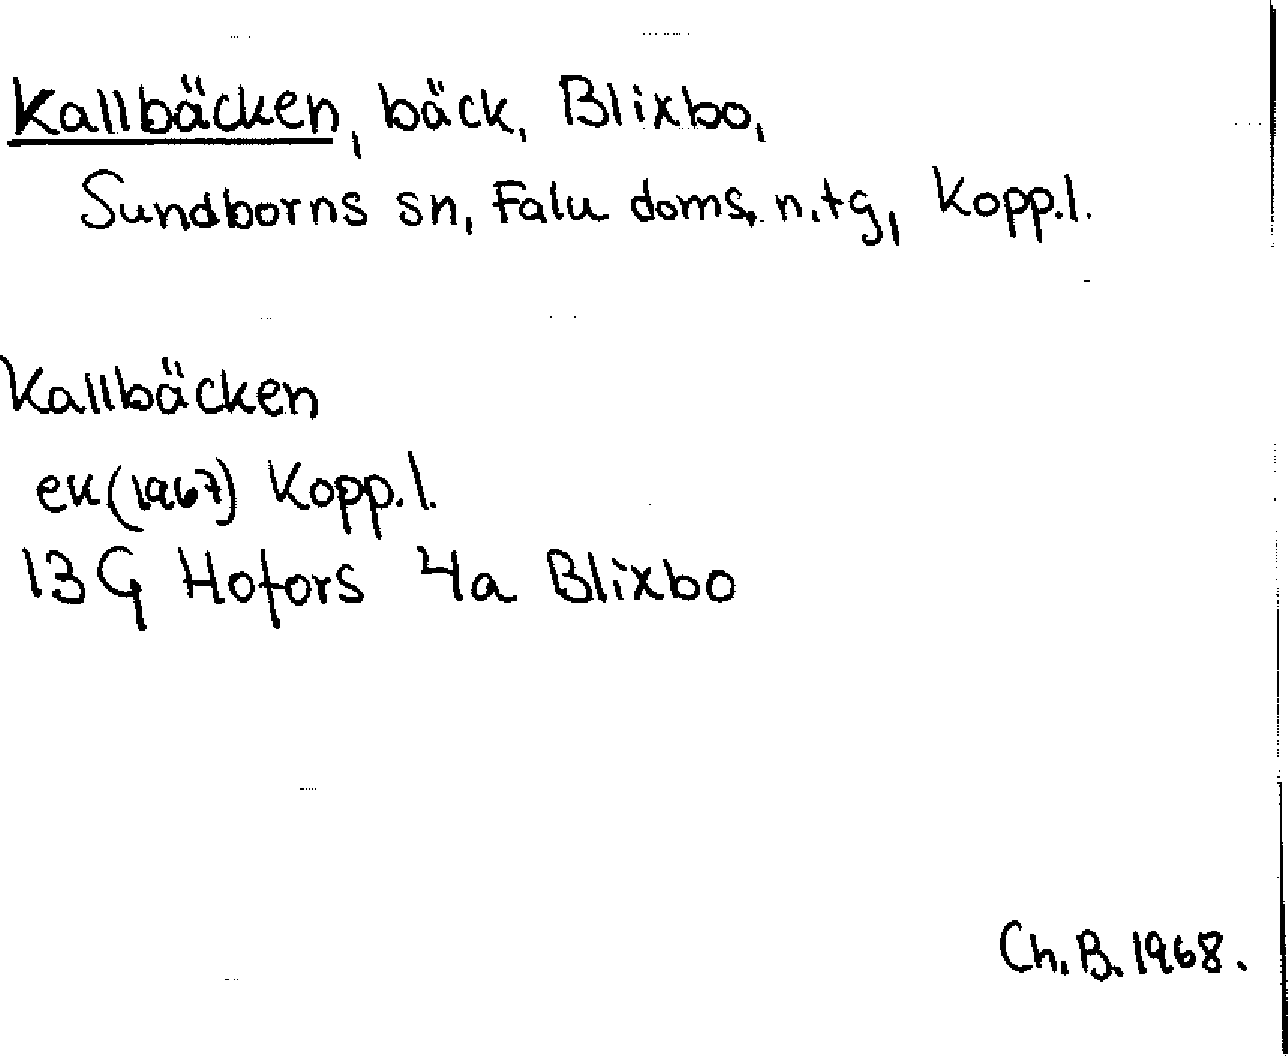 Kallbäcken, bäck, Blixbo,
Sundborns sn, Falu doms. n. tg, Kopp.l.
Kallbäcken
ek(1967) Kopp.l.
13G Hofors 4a Blixbo
Ch.B.1968.